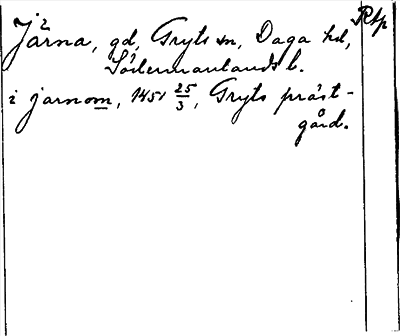 Järna, gd, Gryts sn, Daga hd, Rtp
Södermanlands l.
i jarnom, 1451 25/3, Gryts präst-
gård.